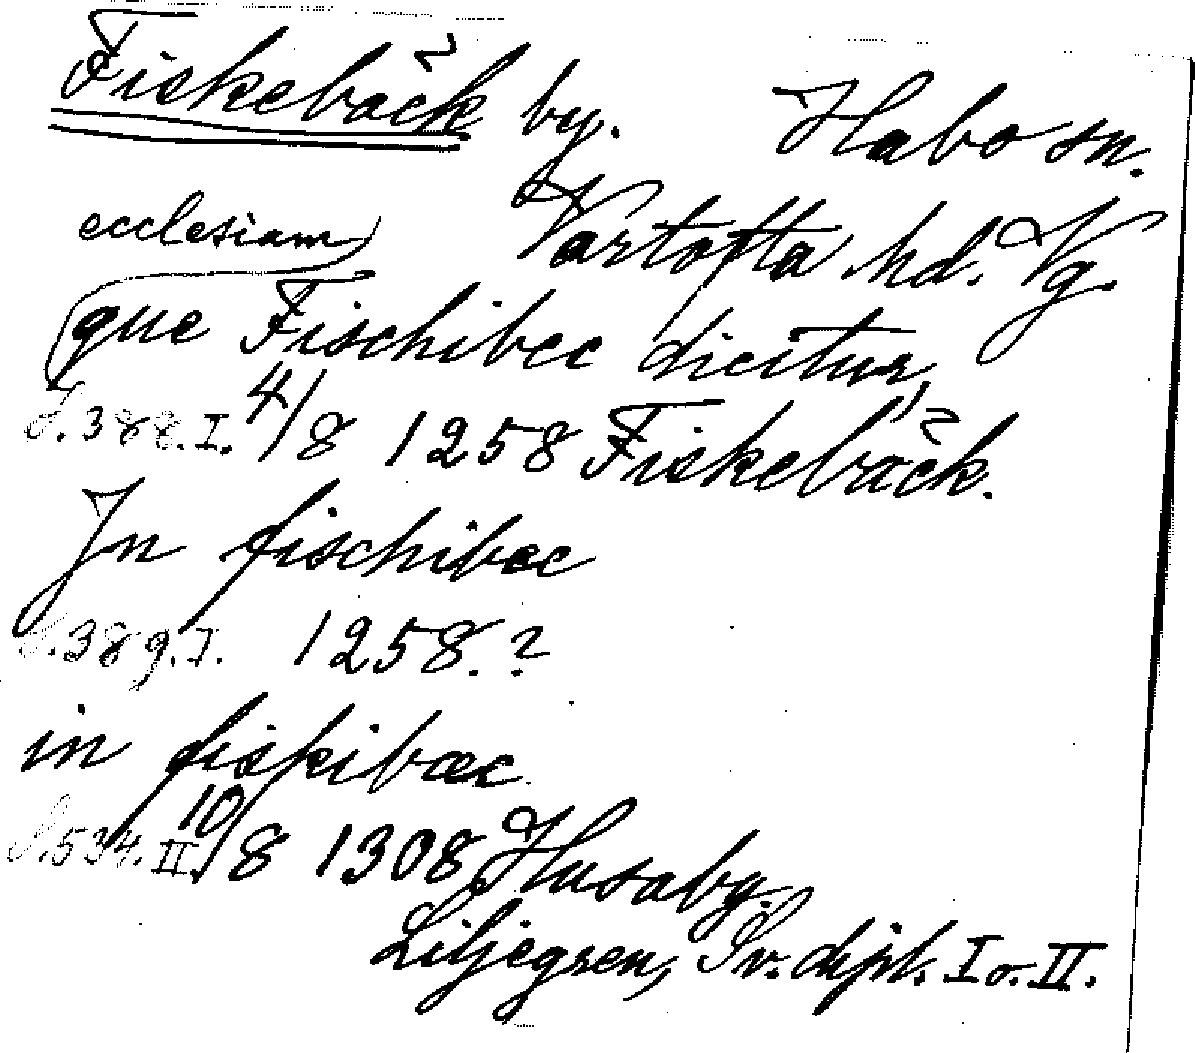 Fiskebäck by. Habo sn.
Vartofta hd. Vg.
ecclesiam
que Fischibec dicitur,
S. 388. I. 4/8 1258 Fiskebäck.
In fischibec
S. 389. I. 1258.?
in fiskibæc
S. 534. II. 10/8 1308 Husaby.
Liljegren, Sv. dipl. I o. II.